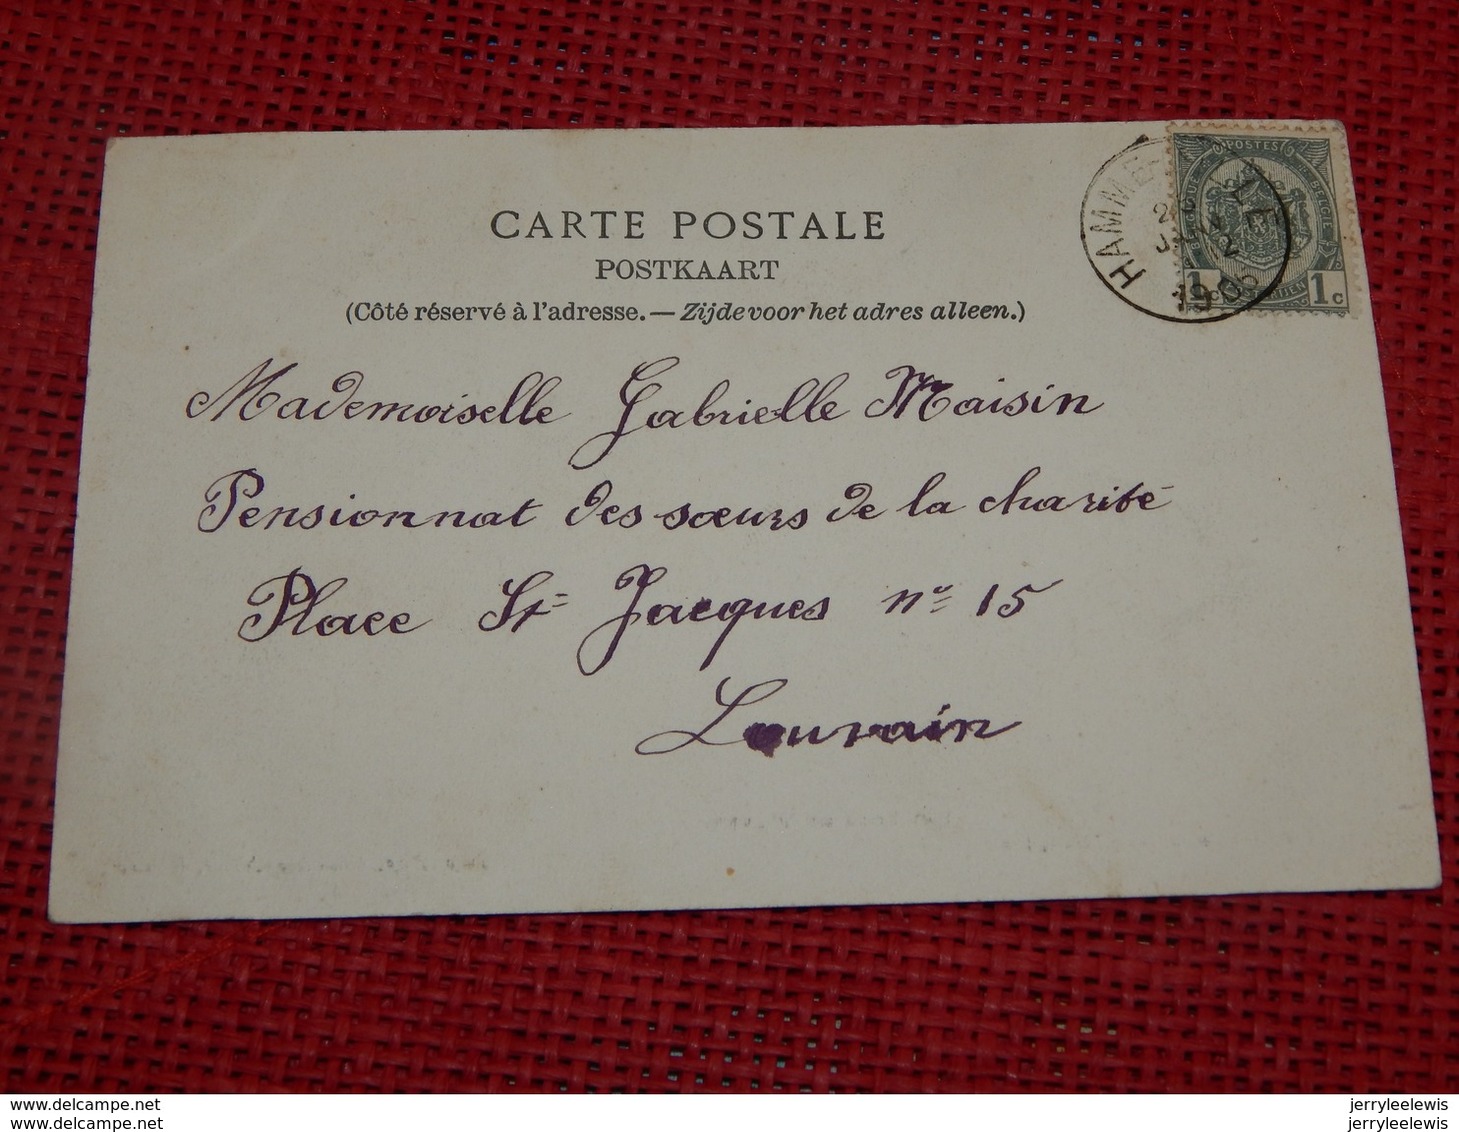 CARTE POSTALE
POSTKAART
(Côté réservé à l'adresse. — Zijde voor het adres alleen.)
POSTES
1 1c
HAMME
1905
Mademoiselle Gabrielle Maisin
Pensionnat des sœurs de la charité
Place St Jacques no 15
Louvain
www.delcampe.net jerryleelewis
www.delcampe.net jerryleelewis